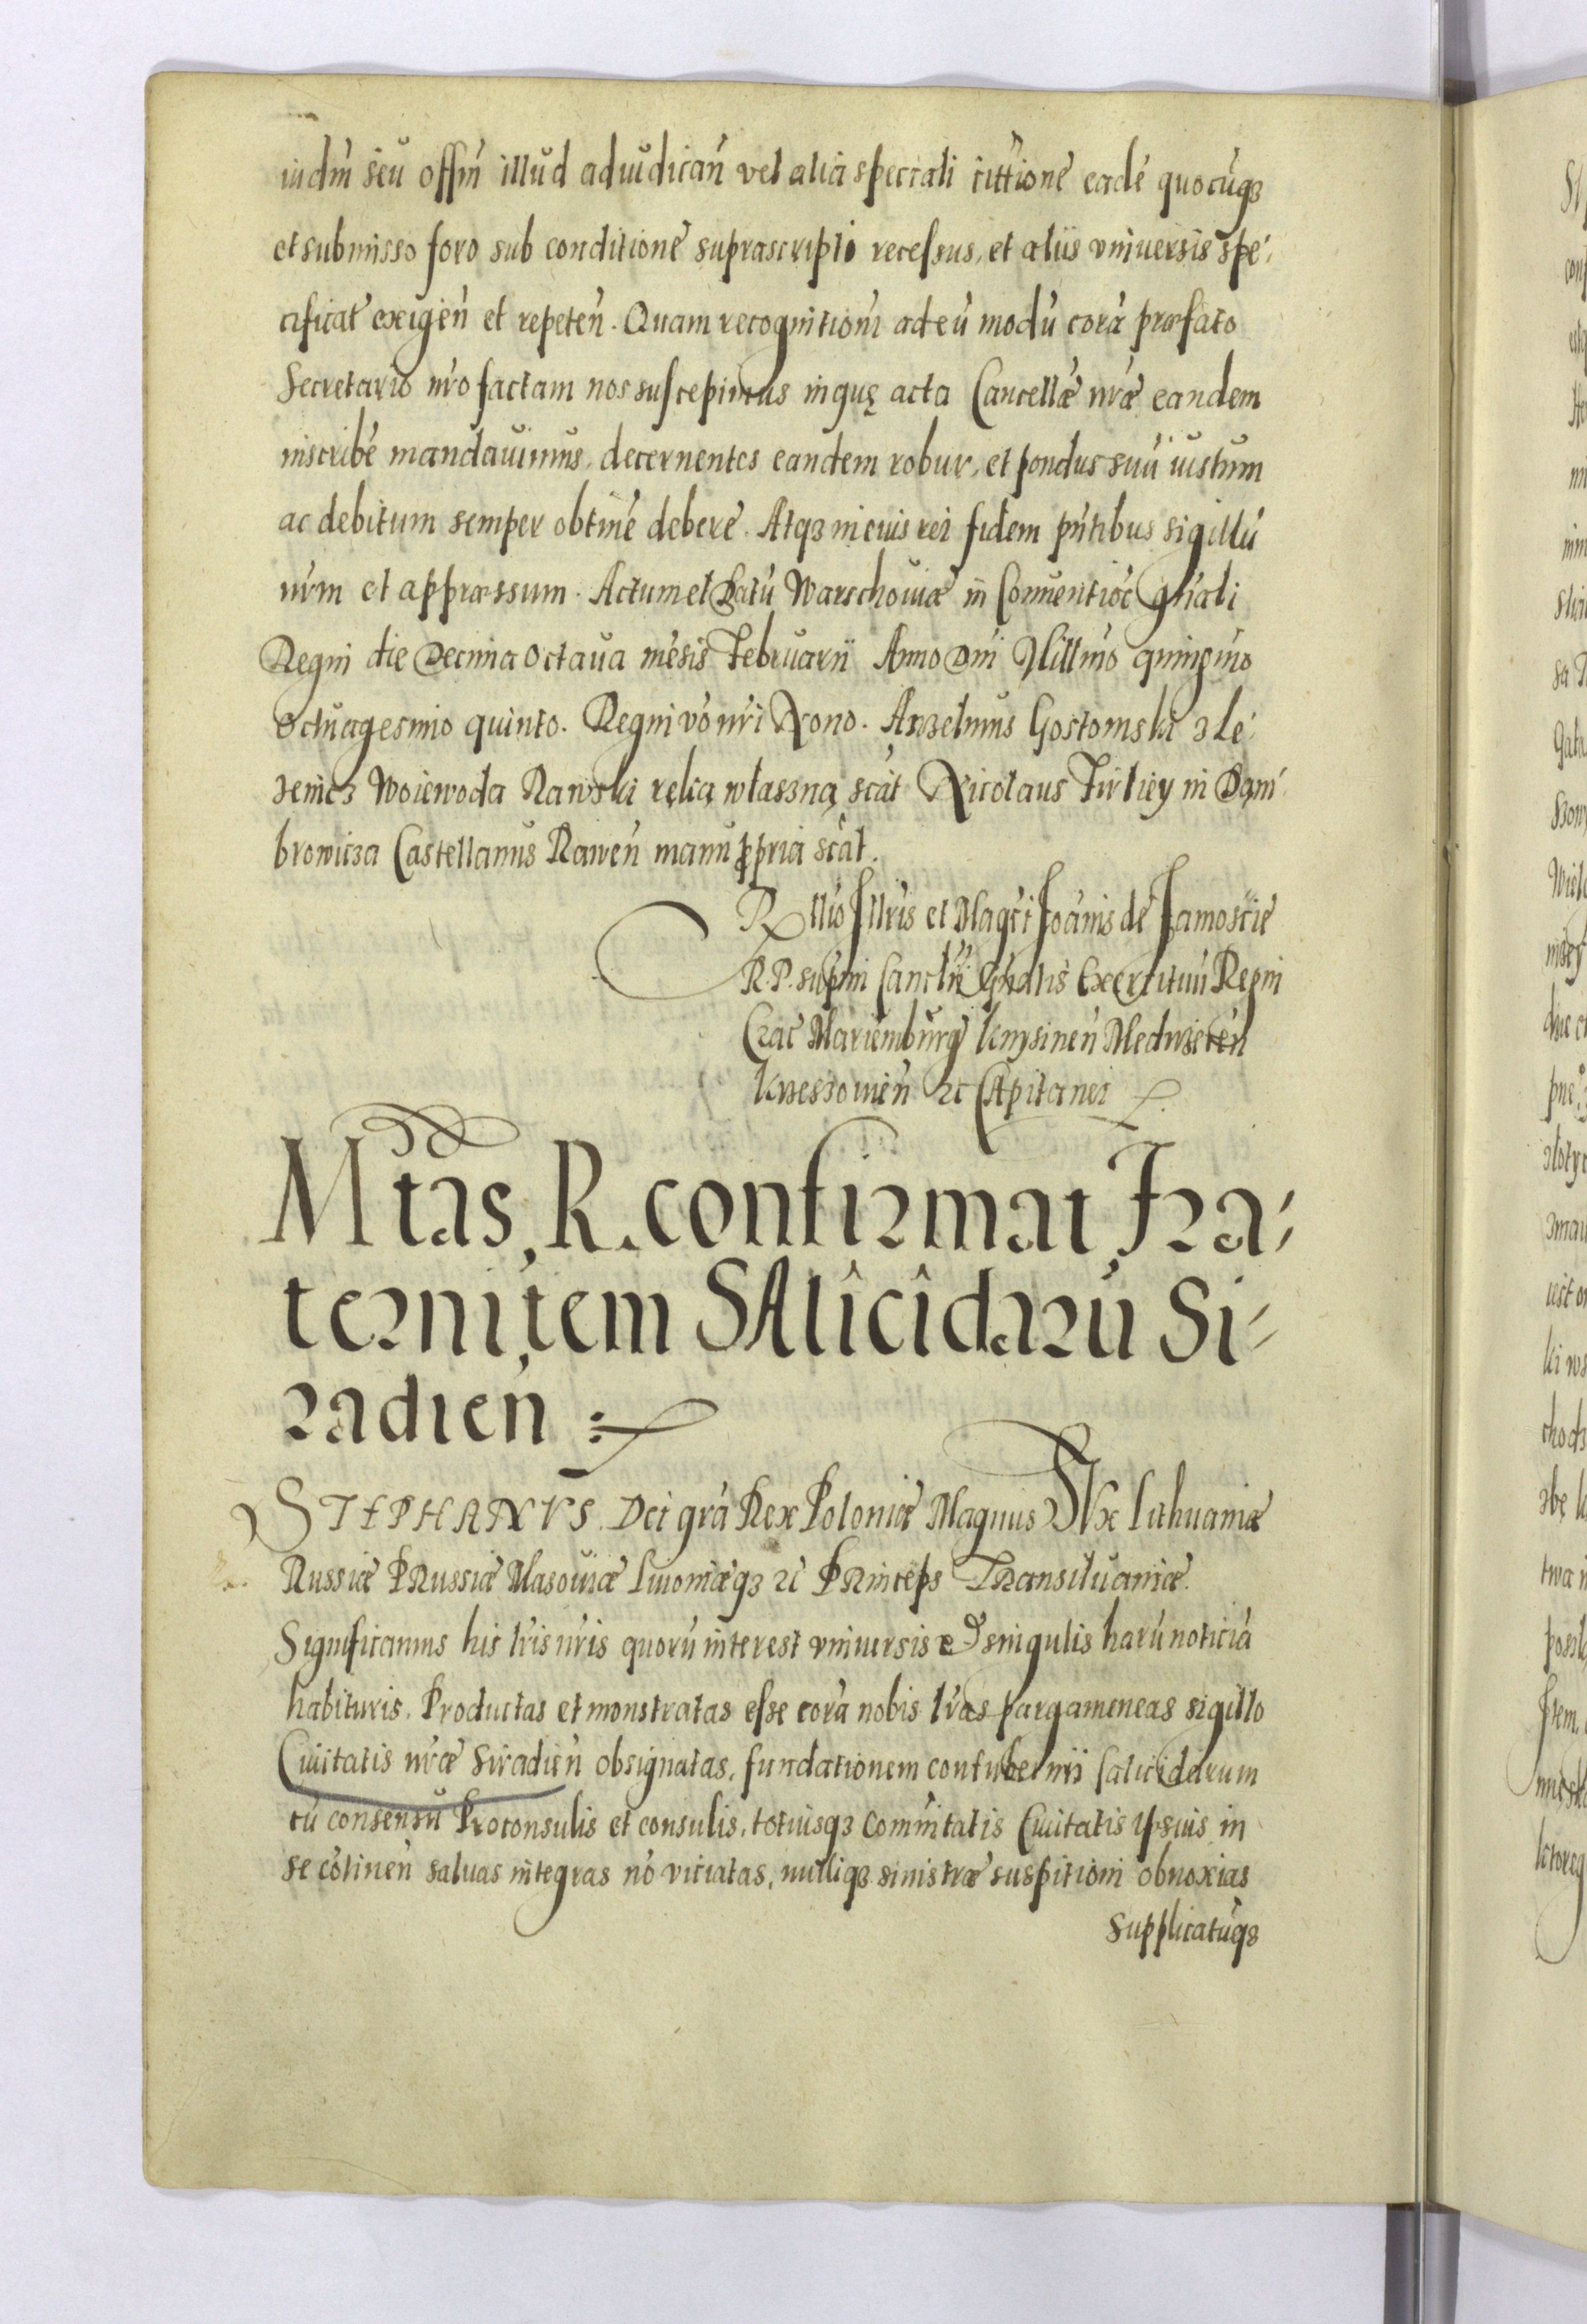 iudm̃ seu offm̃ illud adiudicań vel alia speciali cittione eadē quocūq3
et submisso foro sub conditione suprascripti recessus, et aliis vniuersis spe-
cificat exigeń et repeteń. Quam recognitioni ad eū modū corā præfato
Secretario nr̃o factam nos suscepimus inquę acta Cancellæ nr̃æ eandem
inscribe mandauimus, decernentes eandem robur, et pondus suū iustum
ac debitum semper obtine debere. Atq3 in cuius rei fidem pñtibus sigillū
nr̃m et appræssum. Actum et Datū Warschouiæ in Conuentioē gñali
Regni die Decima Octaua mēsis Februarii Anno Dñi Millm̃o quingm̃o
Octuagesimo quinto. Regni vō nr̃i Nono. Anzelmus Gostomski z Le-
zenicz Woiewoda Rawski ręką właszną scāt Nicolaus Firliey in Dąm-
browicza Castellanus Raweń manu ppria scāt.
Rllio Illr̃is et Magci Joanis de Zamoscie
R. P. supmi Canclrii Gñalis Exercituū Regni
Crac Mariemburg Knysineń Medirzeceń
Krzessowień zc Capitanei
Mtas, R. confirmat Fra-
ternitem SAlicidarū Si-
radień
STEPHANVS. Dei grā Rex Poloniæ Magnus DVx Lithuaniæ
Russiæ PRussiæ Masouiæ Liuoniæq3 zc PRinceps TRansiluaniæ.
Significamus his lr̃is nr̃is quorū interest vniuersis et singulis harū noticiā
habituris. Productas et monstratas esse corā nobis lr̃as pargameneas sigillo
Ciuitatis nr̃æ Siradień obsignatas, fundationem contubernii salicidarum
cū consensu Proconsulis et consulis, totiusq3 Com̃itatis Ciuitatis ipsius in
se cōtineń saluas integras nō viciatas, nulliq3 sinistræ suspitioni obnoxias
Supplicatūq3